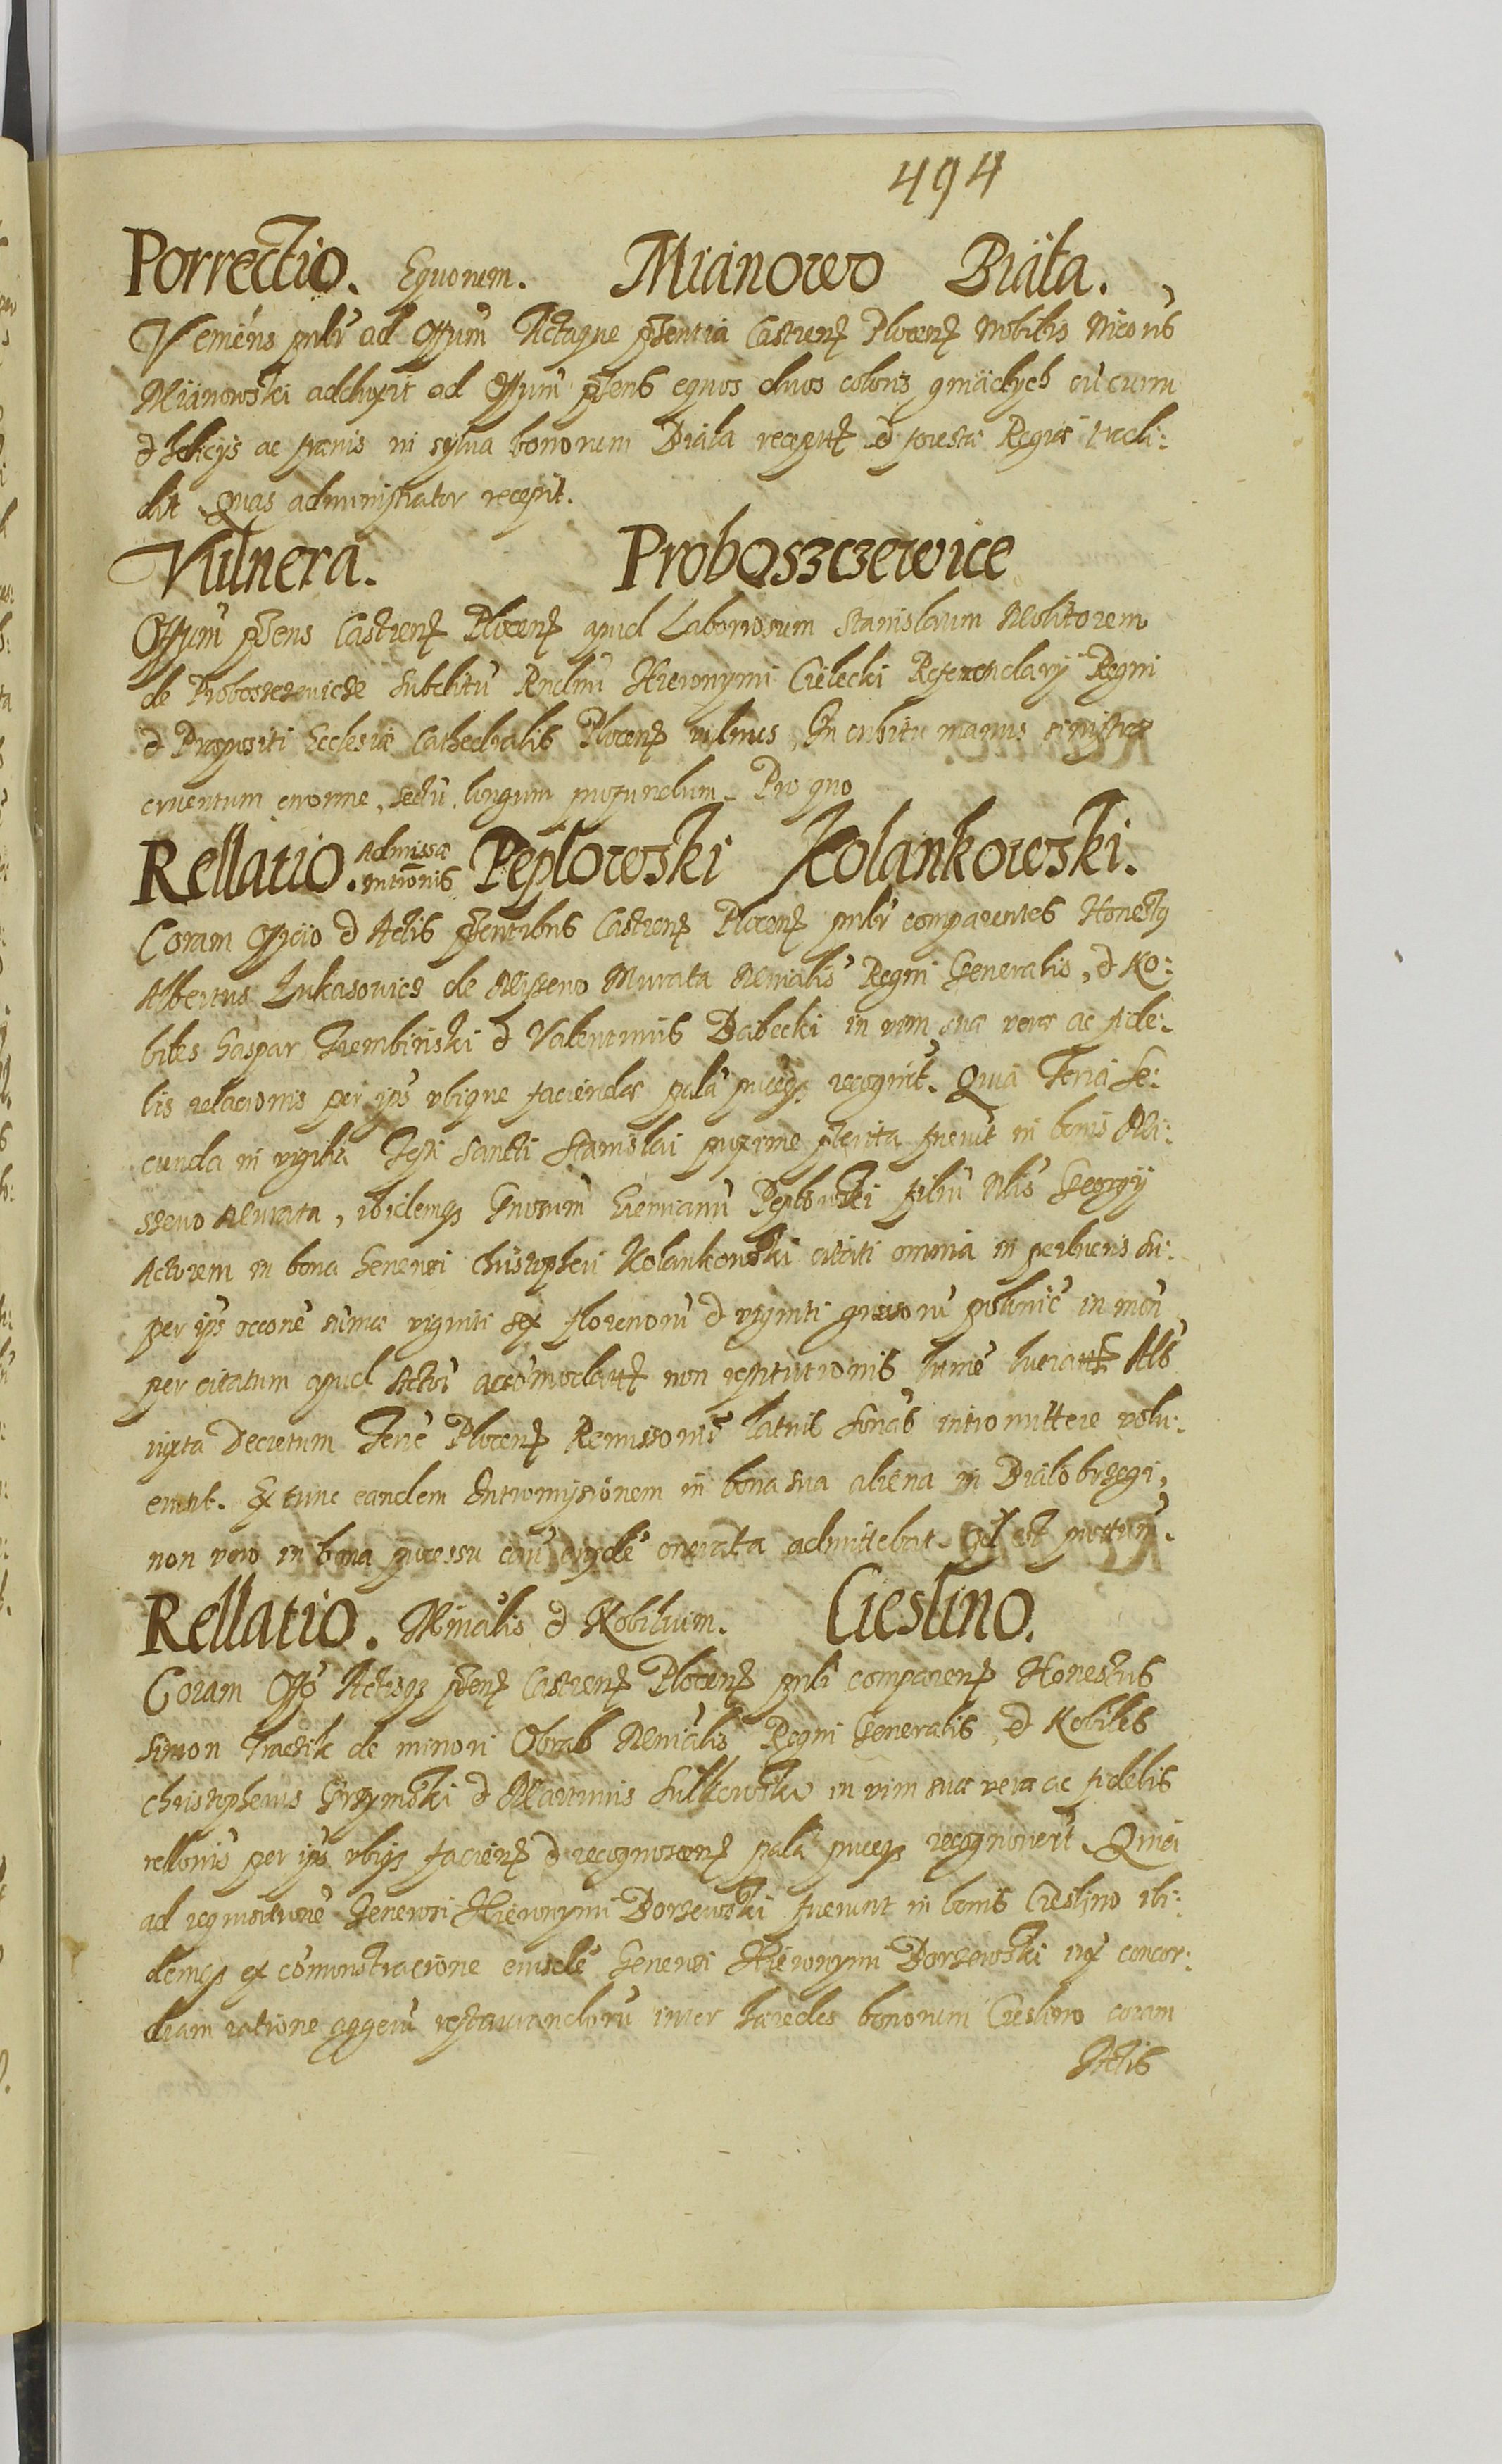 494
Porrectio. Equorum. Mianowo Biała.
Veniens pnlr ad Offum Actaque pntia Castren Plocen Nobilis
Mianowski adduxit ad Offum pñs equos duos coloris gniadych cu cum
et ac frænis in sylva bonorum Biala recept et foresta Regia tradi:
dit Quas administrator recepit.
Vulnera. Proboszczewice
Offum pñs Castren Plocen apud Laboriosum Stanislaum Molitorem
de Proboszczewicze Subditu Rndmi Hieronymi Cielecki Referendarij Regni
et Præpositi Ecclesiæ Cathedralis Plocen vulnus In cubitu manus sinistræ
cruentum enorme, sectu, longum profundum. Pro quo
Rellatio. Admissæ intromnis Peplowski Kolankowski.
Coram Officio et Actis pñtibus Castren Plocen pnlr comparentes Honestus
Albertus Lukasovicz de Miszewo Murata Mñialis Regni Generalis, et No:
biles Gaspar Trembinski et Valentinus Babecki in vim suæ veræ ac fide:
lis relacionis per ips ubique faciendæ palã puceq recognt. Quia Feria Se:
cunda in vigilia Festi Sancti Stanislai proxime pterita fuerut in bonis Mi:
szewo Murata, ibidemq Gnosum Peplowski filiu Nlis Georgij
Actorem in bona Generosi Christopheri Kolankowski citati omnia in
per ips occone sumæ viginti sex florenorũ et viginti grossorũ in
per citatum apud Actorẽ accõmodat non restitutionis
iuxta Decretum Terre Plocen Remissionis latius intromittere volu:
erunt. Ex tunc eandem Intromissionem in bona sua aliena in Bialobrzegi,
non vero in bona processu eiusdẽ onerata admittebat.
Rellatio. Minialis et Nobilium. Cieslino.
Coram Offo Actisq pñtn Castren Plocen pnlr comparen Honestus
Simon de minori Obrab Mnialis Regni Generalis, et Nobiles
Christopherus Grzymski et Martinus Sulkowski in vim suæ veræ ac fidelis
rellonis per ips ubiq facien et recognoscen palã puceq recognovert Quia
ad requisitionẽ Generosi Hieronymi Borzewski fuerunt in bonis Cieslino ibi:
demq ex cõmonstracione eiusdẽ Generosi Hieronymi Borzewski iux concor:
diam ratione aggerũ restaurandorũ inter hæredes bonorum Cieslino coram
Actis